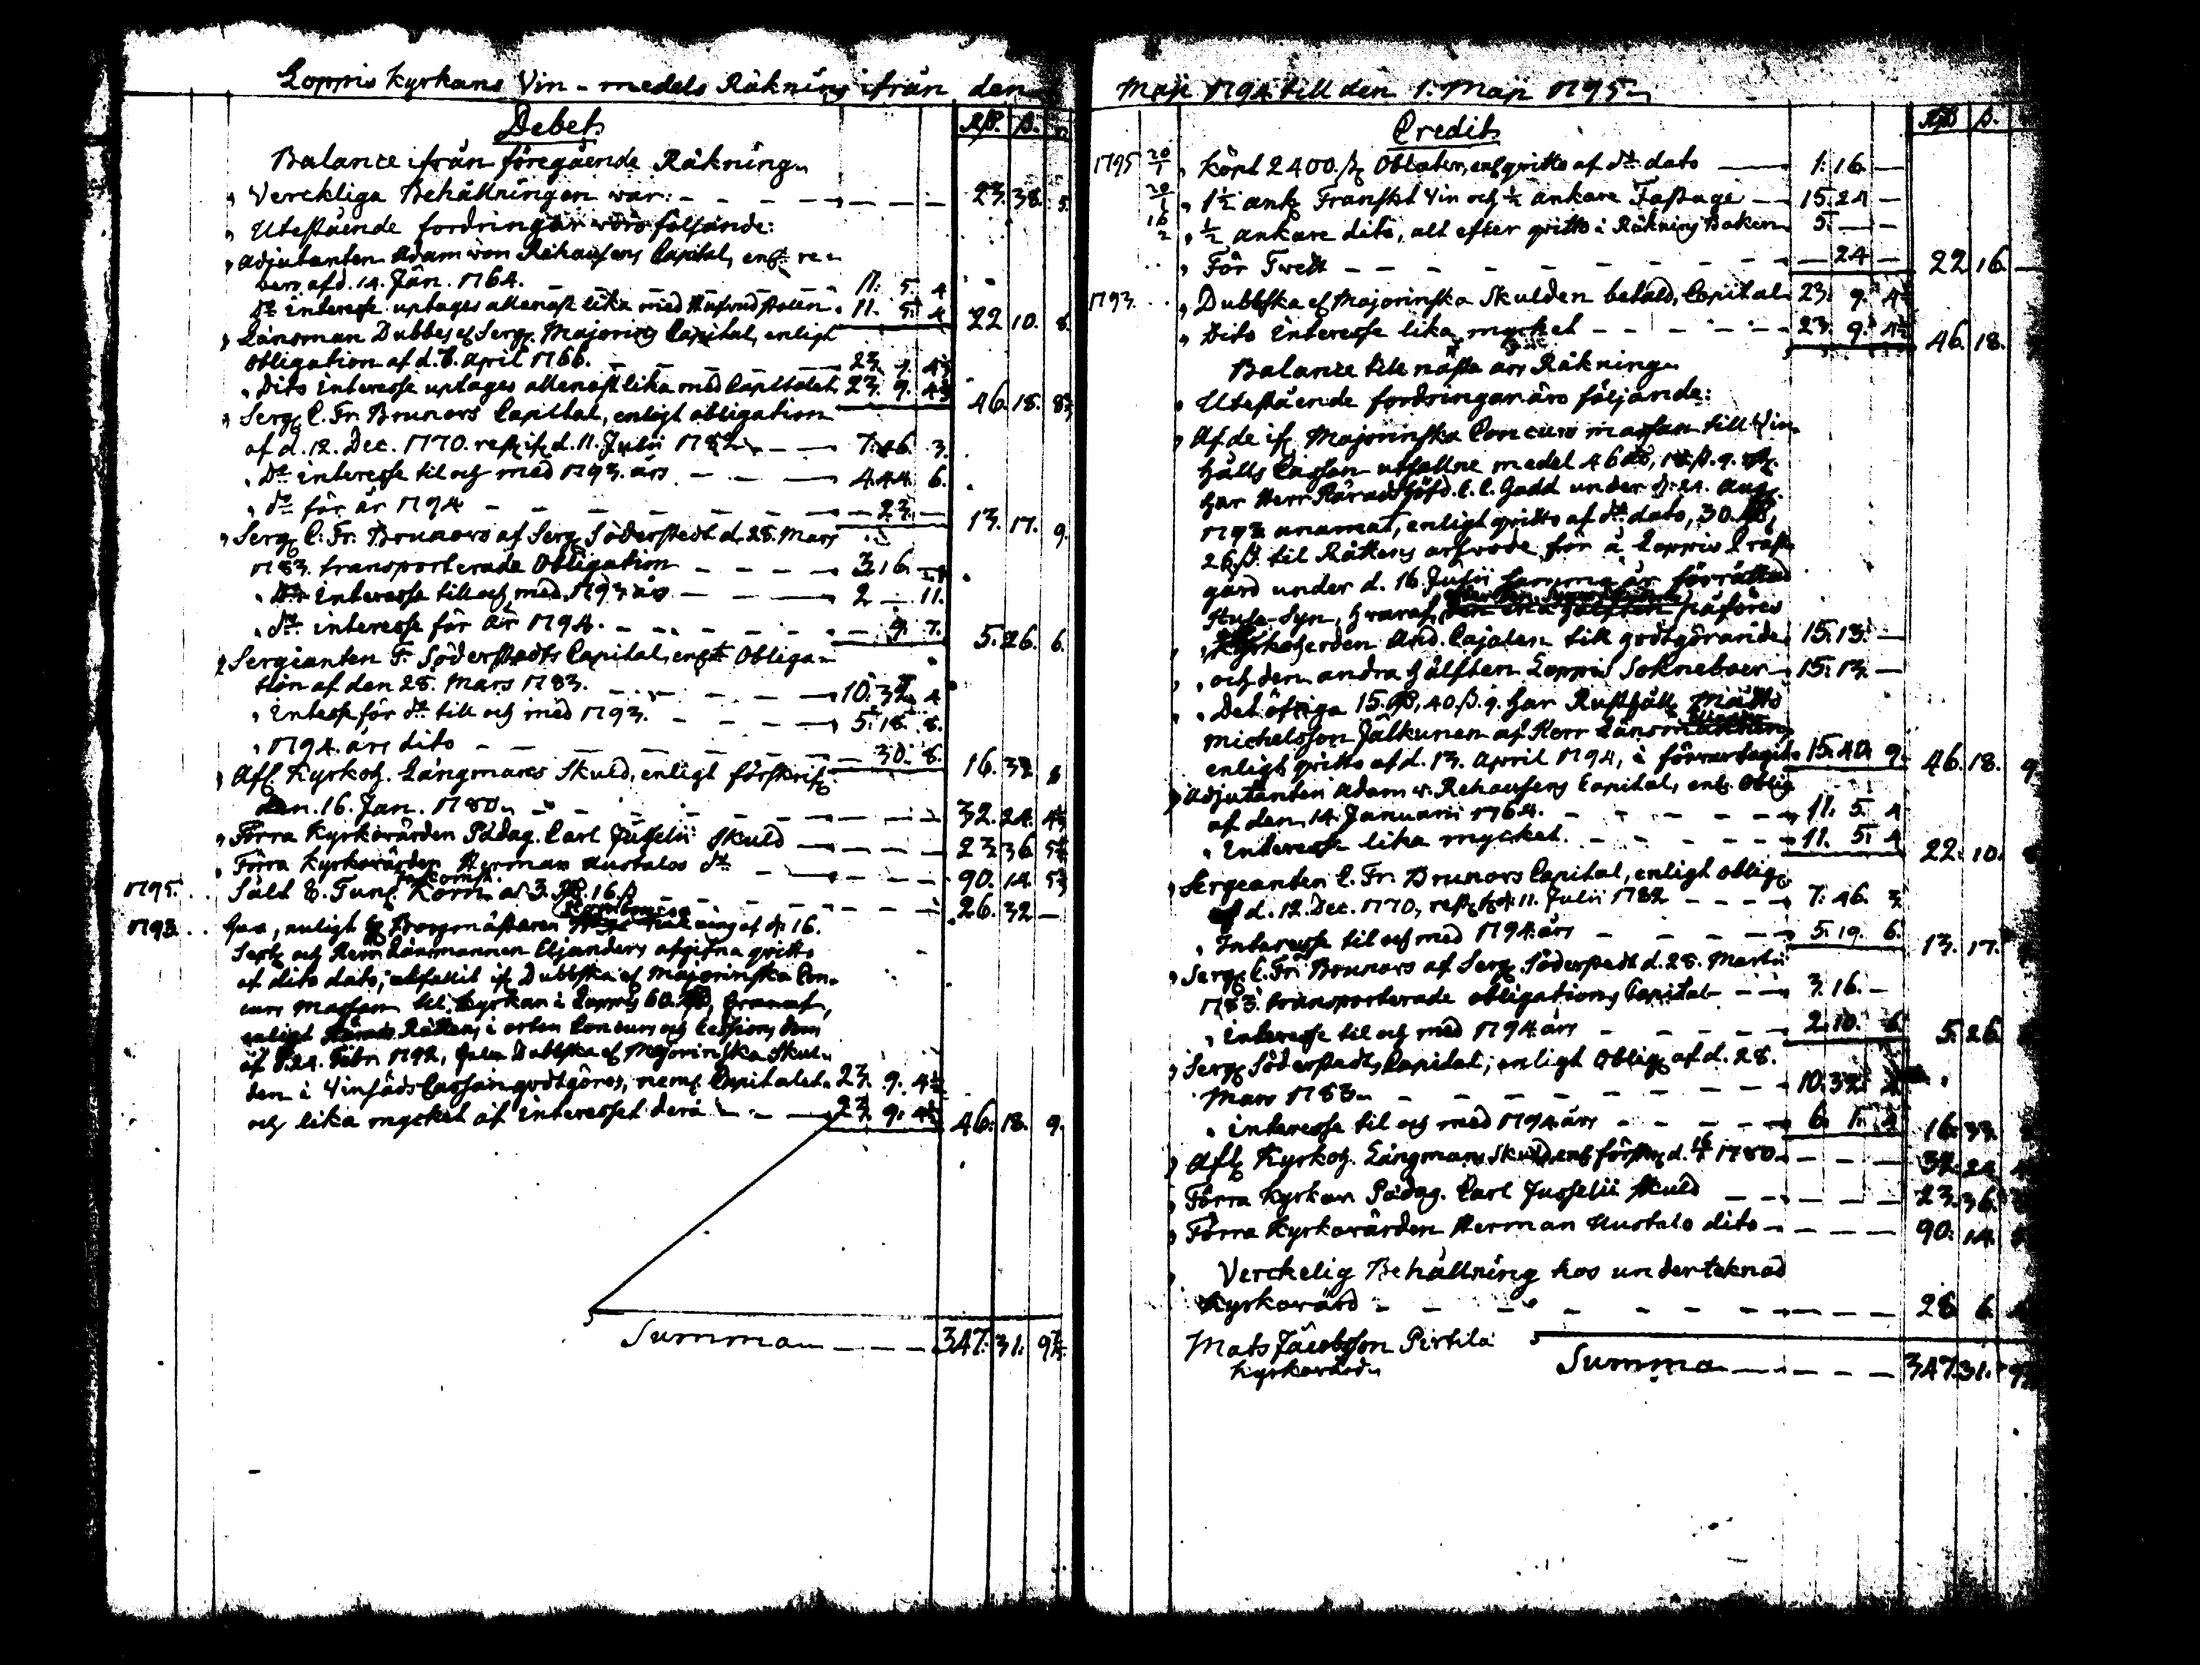 Loppis Kyrkans Vin-medels Räkning ifrån den
Debet
RD. ß.
Balance ifrån föregående Räkning
Verckliga Behållningen war. 23. 38. 5.
Utestående fordringar woro följande:
Adjutanten Adam von Rehausens Capital, enl. re-
vers af d. 14. Jan. 1764. 11. 5. 4
do interesse uptages allenast lika med Hufvudstolen. 11. 5. 4 22 10. 8.
Länsman Dubbes ef Serg. Majorins Capital, enligt
obligation af d. 6. April 1766. 23. 9. 4½
Dito interesse uptages allenast lika med Capitalet 23. 9. 4½ 46. 18. 
Serg. C. Fr. Brunors Capital, enligt obligation
af d. 12. Dec. 1770. rest. d. 11. Julii 1782 7. 46. 3.
do interesse til och med 1793. års 4. 44. 6.
do för år 1794 23. 13. 17. 9.
Serg. C. Fr. Brunors af Serg. Söderstedt d. 28. Mars
1783. transporterade Obligation 3 16
do interesse till och med 1793 års 2 11.
do interesse för år 1794. 7. 5. 26. 6.
Sergianten F. Söderstedts Capital, enligt Obliga-
tion af den 28. Mars 1783. 10. 32. 4
Interesse för do till och med 1793. 5. 18. 8.
1794. års dito 30. 8. 16. 33.
Afl. Kyrkoh. Långmans Skuld, enligt förskrif.
den 16. Jan. 1780. 32. 24.
Förra Kyrkovärden Pädag. Carl Jusselii Skuld 23. 36.
Förra Kyrkovärden Herman Uustalos do 90. 14.
1795. Sålt 8. Tun. Korn a 3. RD. 16. ß 26. 32
1793. Har, enligt Borgmästaren af d. 16.
Sept. och Herr Länsmannen Eljanders afgifna qvitto
af dito dato, utfallit if Dubbska ef Majorinska Con-
curs Massan til Kyrkan i Loppis 60. RD, hvaraf,
enligt Härads Rättens i orten Concurs och Cessions dom
af d. 24. Febr. 1792, hela Dubbska ef Majorinska Skul-
den i Vinsäds Cassan godtgöres, neml. Capitalet 23. 9. 4½
och lika mycket af interesset derå 23. 9. 4½ 46. 18. 9.
Summa 347. 31. 9
Maji 1794 till den 1. Maji 1795
Credit
RD ß.
1795 20/1 Köpt 2400. st Oblater, enl. qvitto af do dato 1. 16
20/1 1½ ank. Franskt Vin och ½ ankare Fastage 15. 24
16/2 ½ ankare dito, alt efter qvitto i Räkning Boken 5.
För Twett 24 22 16.
1793. Dubbska ef Majorinska Skulden betald, Capital 23. 9. 4½
Dito Interesse lika mycket 23. 9. 4½ 46. 18.
Balance till nästa års Räkning
Utestående fordringar äro följande:
Af de if. Majorinska Concurs massan till Vin-
hålls Cassan utfallne medel 46 RD, 18. ß. 9.
har Herr Häradshöfd. C. C. Gadd under d. 24. Aug.
1793. anamat, enligt qvitto af do dato, 30. RD,
26. ß. til Rättens arfvode för å Loppis Präste
gård under d. 16. Julii samma år förrättad
Huse-Syn, hvaraf påföres
Kyrkoherden And. Cajalen till godtgörande 15. 13.
och den andra hälften Loppis Sokneboer 15. 13
Det öfriga 15. RD, 40. ß. 9. har Rusthåll. Matts
Michelsson Jälkunen af Herr
enligt qvitto af d. 13. April 1794, i förvar tagit 15. 40. 9. 46. 18. 9
Adjutanten Adam v. Rehausens Capital, enl. Oblig.
af den 14. Januarii 1764. 11. 5. 4
Interesse lika mycket 11. 5. 4 22. 10.
Sergeanten C. Fr. Brunors Capital, enligt oblig.
af d. 12. Dec. 1770, rest. d. 11. Julii 1782 7. 46. 3
Interesse til och med 1794. års 5. 19. 6. 13. 17.
Serg. C. Fr. Brunors af Serg. Söderstedt d. 28. Martii
1783. transporterade obligations Capital 3. 16.
interesse til och med 1794 års 2. 10. 6. 5. 26
Serg. Söderstedts Capital, enligt Oblig. af d. 28.
Mars 1783. 10. 32. 4
interesse til och med 1794. års 6. 1. 4 16. 33.
Afl. Kyrkoh. Långmans Skuld, enl. förskr. d. 16/1 1780 32. 24
Förra Kyrkov. Pädag. Carl Jusselii Skuld 23. 36.
Förra Kyrkovärden Herman Uustalo dito 90. 14.
Verckelig Behållning hos undertecknad
Kyrkovärd 28 6
Mats Jacobsson Pirtila
Kyrkovärd.
Summa 347. 31. 9